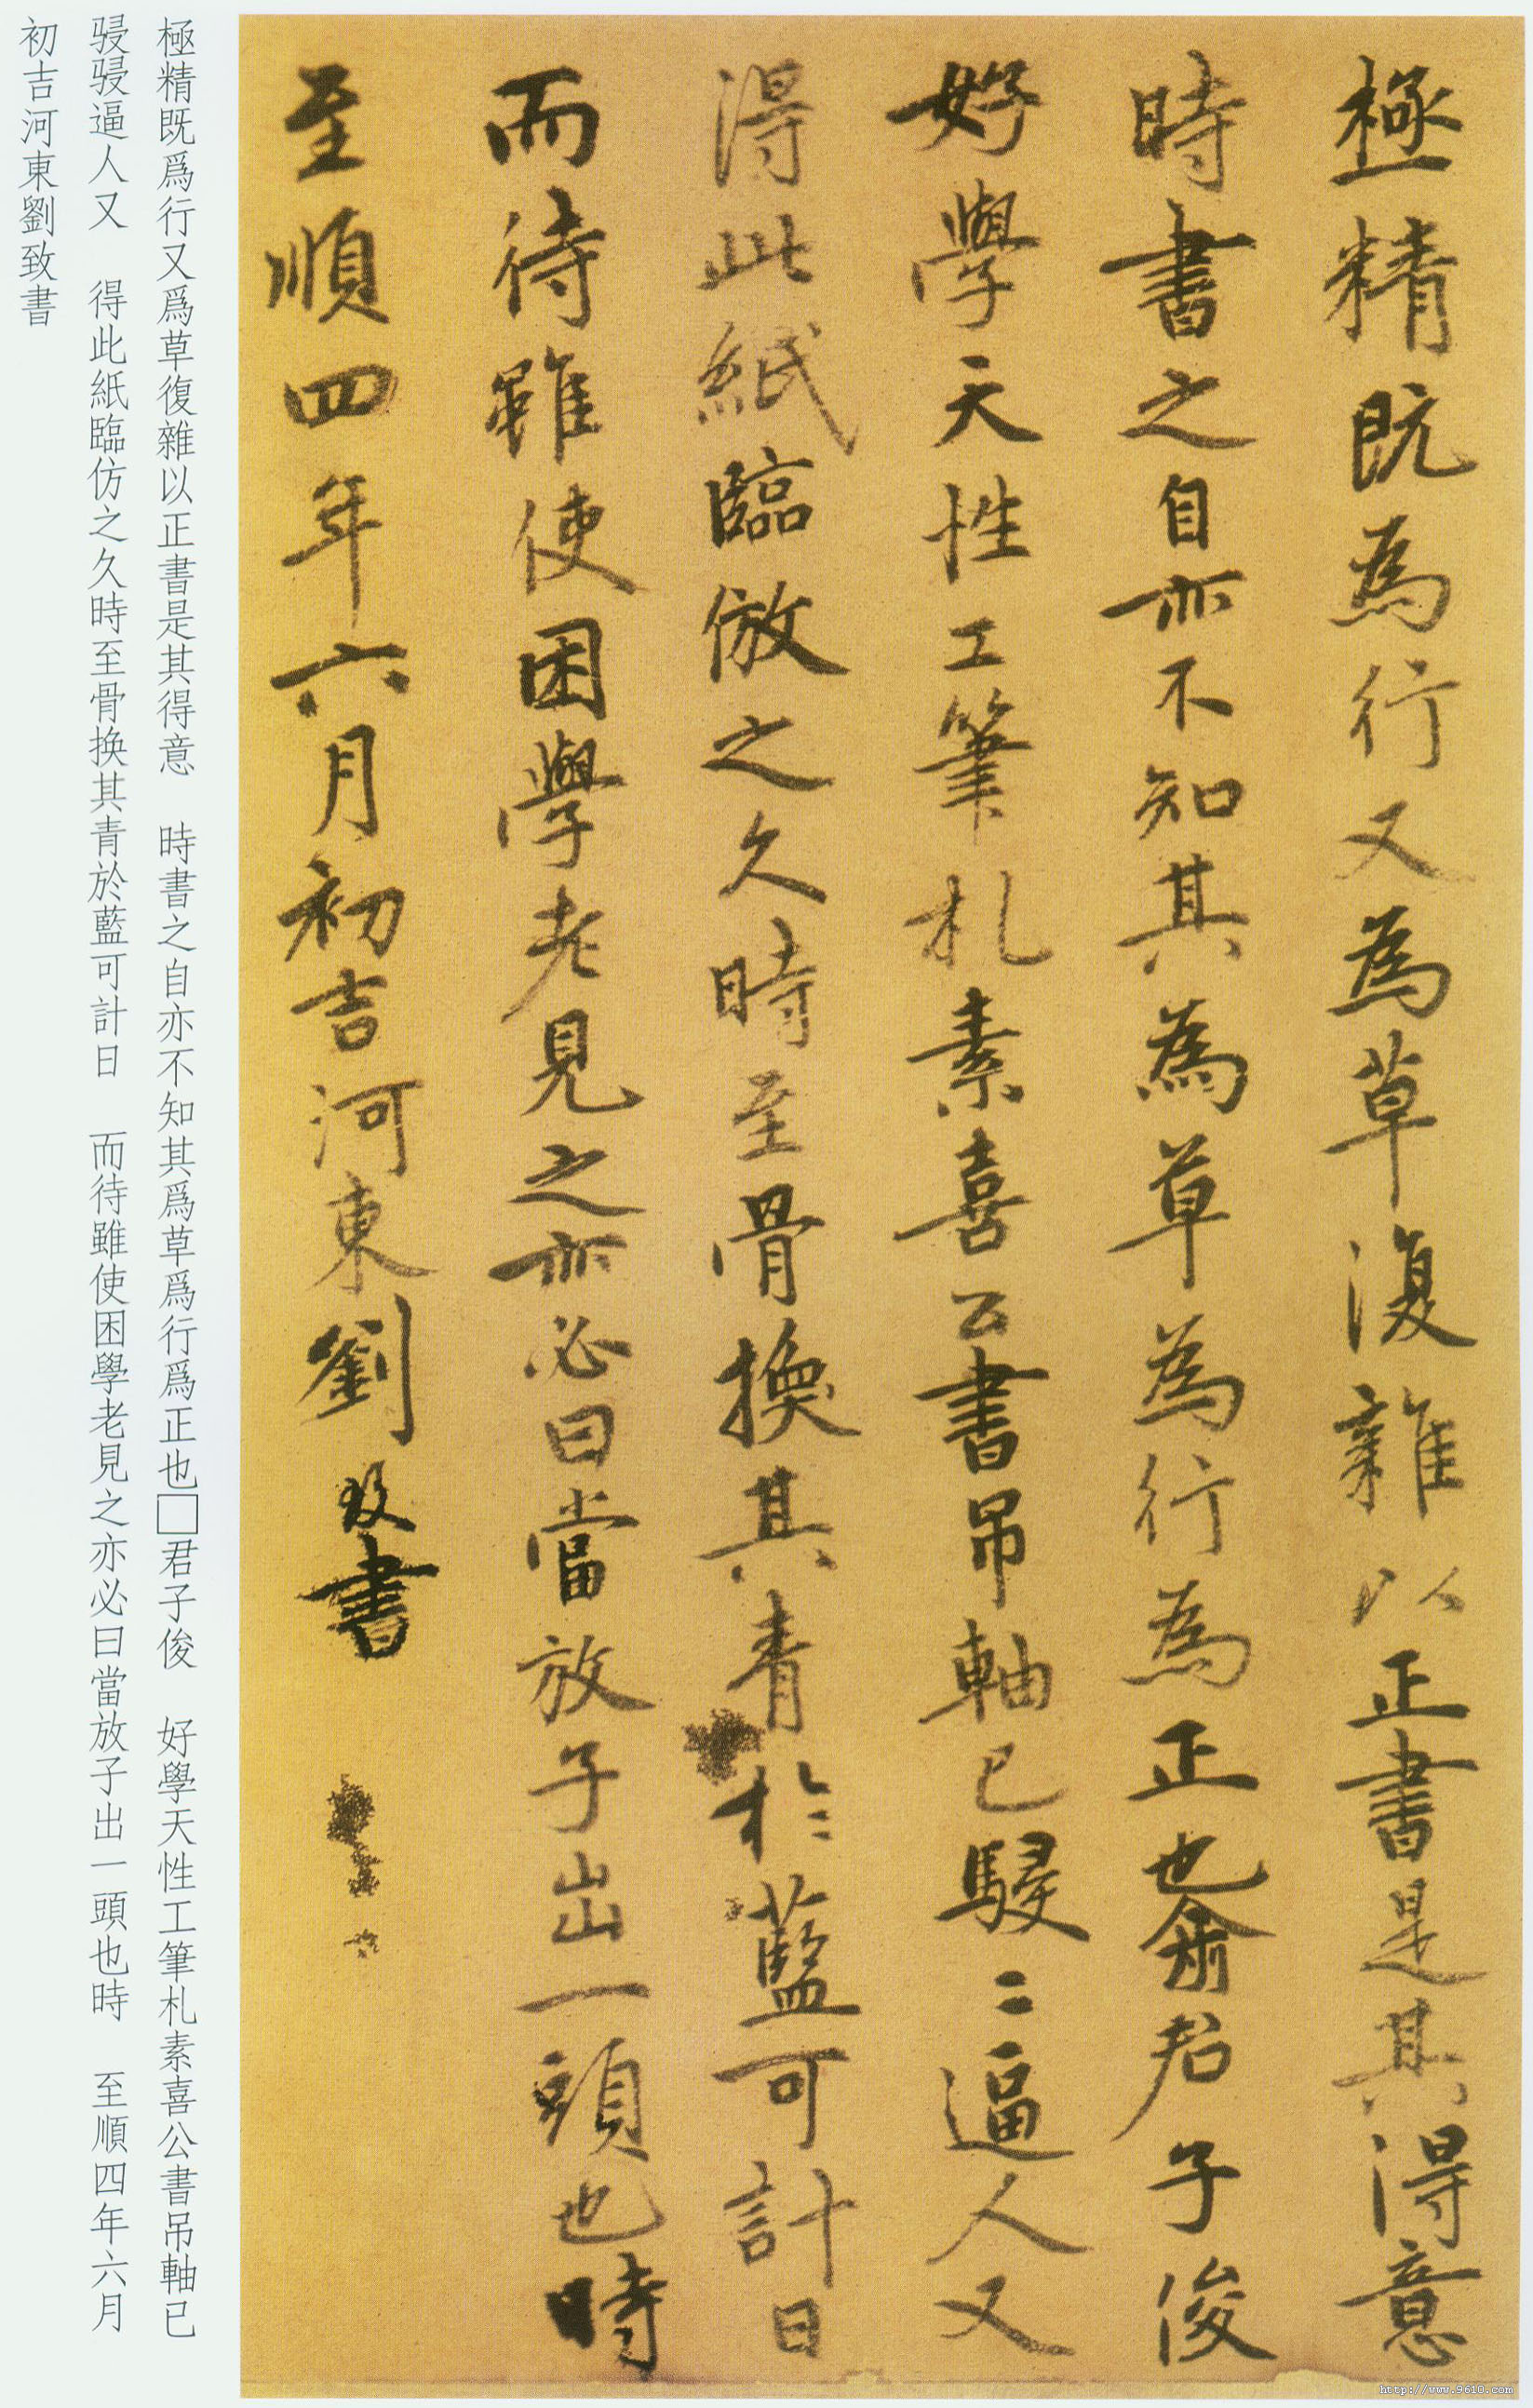 極精既為行又為草復雜以正書是其得意
時書之自亦不知其為草為行為正也俞君子俊
好學天性工筆札素喜公書吊軸已駸〻逼人又
得此紙臨倣之久時至骨換其青於藍可計日
而待雖使困學老見之亦必曰當放子出一頭也時
至順四年六月初吉河東劉致書
極精既爲行又爲草復雜以正書是其得意　時書之自亦不知其爲草爲行爲正也□君子俊　好學天性工筆札素喜公書吊軸已
駸駸逼人又　得此紙臨仿之久時至骨換其青於藍可計日　而待雖使困學老見之亦必曰當放子出一頭也時　至順四年六月
初吉河東劉致書
http://www.9610.com